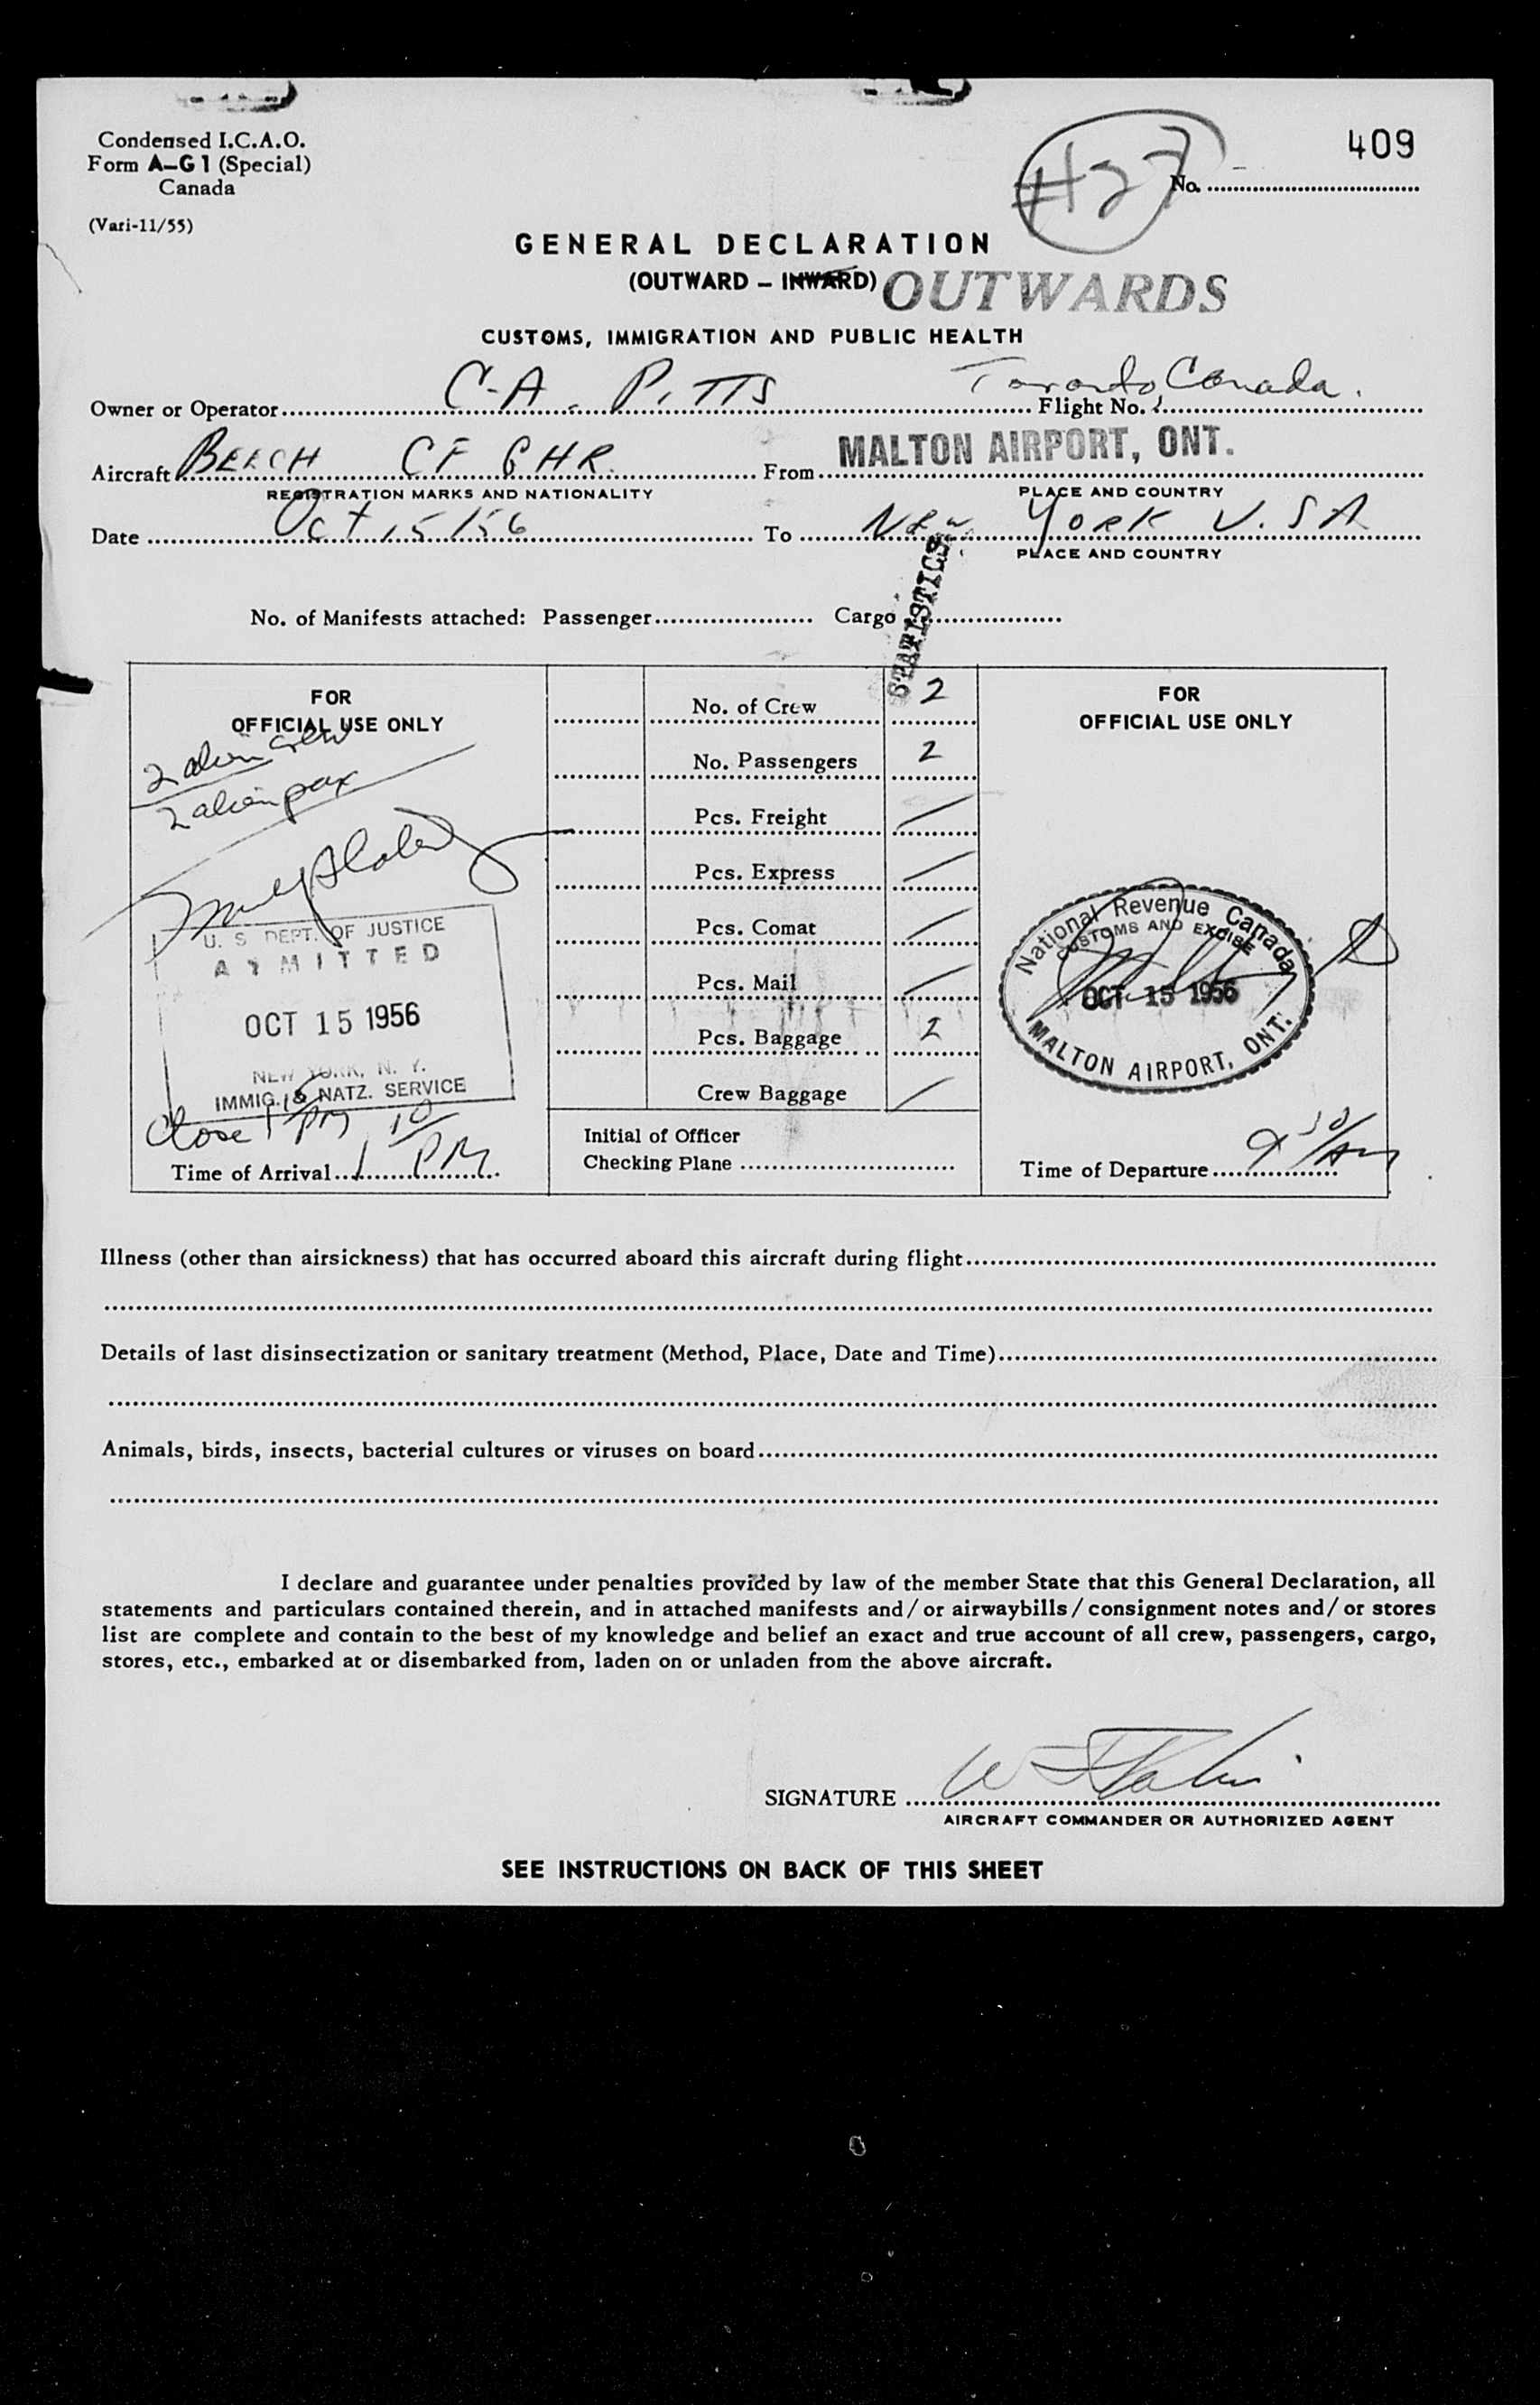 Condensed I.C.A.O.
Form A-G1 (Special)
Canada
(Vari-11/55)
409
#27
No.
GENERAL DECLARATION
(OUTWARD - INWARD) OUTWARDS
CUSTOMS, IMMIGRATION AND PUBLIC HEALTH
Owner or Operator C-A. PITTS Toronto Canada. Flight No.
Aircraft BEECH CF GHR From MALTON AIRPORT, ONT.
REGISTRATION MARKS AND NATIONALITY PLACE AND COUNTRY
Date Oct 15/56 To New York U.S.A
PLACE AND COUNTRY
STATISTICS
No. of Manifests attached: Passenger Cargo
FOR
OFFICIAL USE ONLY
2 alien crew
2 alien pax
U. S. DEPT. OF JUSTICE
ADMITTED
OCT 15 1956
NEW YORK, N. Y.
IMMIG. & NATZ. SERVICE
Close 1 15 PM
Time of Arrival 1 10 PM
No. of Crew 2
No. Passengers 2
Pcs. Freight /
Pcs. Express /
Pcs. Comat /
Pcs. Mail /
Pcs. Baggage 2
Crew Baggage /
Initial of Officer
Checking Plane
FOR
OFFICIAL USE ONLY
National Revenue Canada
CUSTOMS AND EXCISE
OCT 15 1956
MALTON AIRPORT, ONT.
Time of Departure 9 30/AM
Illness (other than airsickness) that has occurred aboard this aircraft during flight
Details of last disinsectization or sanitary treatment (Method, Place, Date and Time)
Animals, birds, insects, bacterial cultures or viruses on board
I declare and guarantee under penalties provided by law of the member State that this General Declaration, all
statements and particulars contained therein, and in attached manifests and/or airwaybills/consignment notes and/or stores
list are complete and contain to the best of my knowledge and belief an exact and true account of all crew, passengers, cargo,
stores, etc., embarked at or disembarked from, laden on or unladen from the above aircraft.
SIGNATURE
AIRCRAFT COMMANDER OR AUTHORIZED AGENT
SEE INSTRUCTIONS ON BACK OF THIS SHEET